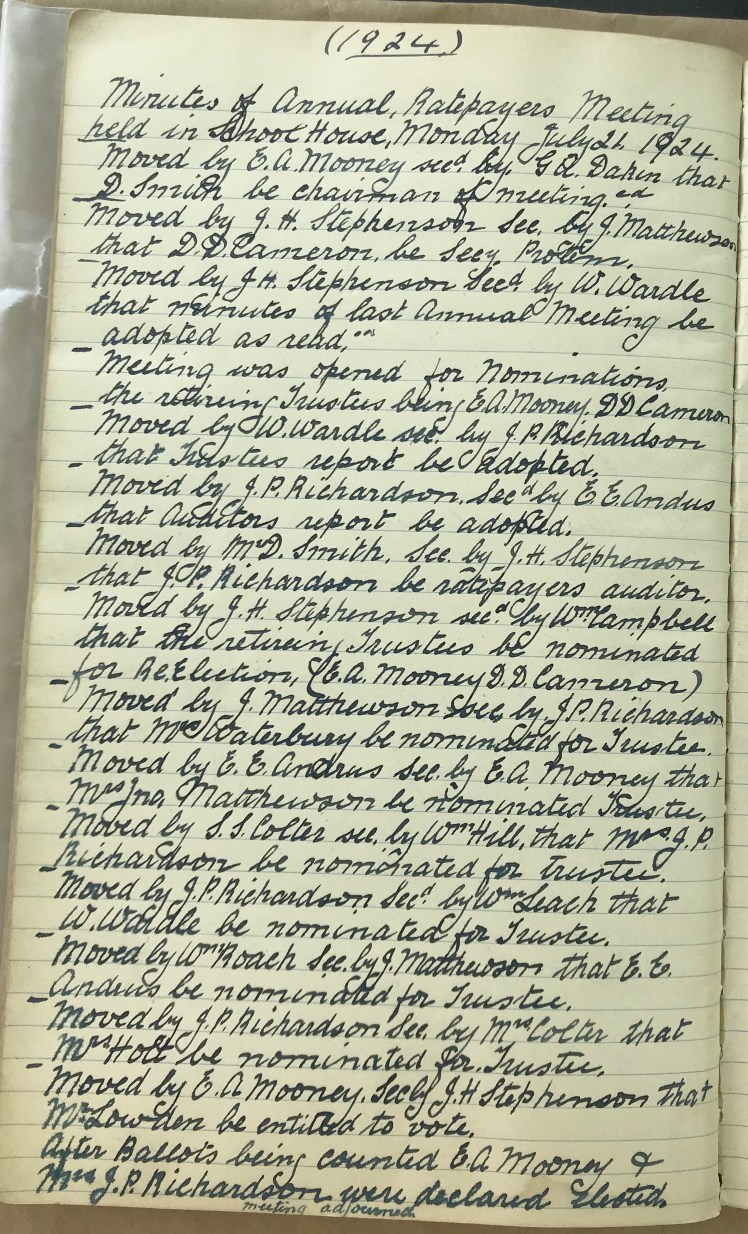 (1924)
Minutes of Annual, Ratepayers Meeting
held in School House, Monday July 21. 1924.
Moved by E.A. Mooney secd by. G.R. Dakin that
D. Smith be chairman of meeting. cd
Moved by J. H. Stephenson Sec. by J. Matthewson
that D.D. Cameron, be Secy Protem.
Moved by J.H. Stephenson Secd by W. Wardle
that minutes of last Annual Meeting be
adopted as read,
Meeting was opened for Nominations,
the retireing Trustees being E.A. Mooney. DD Cameron
Moved by W. Wardle sec. by J.P. Richardson
that Trustees report be adopted.
Moved by J.P. Richardson. Secd by E.E. Andus
that Auditors report be adopted.
Moved by Mr D. Smith, Sec. by J.H. Stephenson
that J.P. Richardson be ratepayers auditor.
Moved by J.H. Stephenson secd by Wm Campbell
that the retireing Trustees be nominated
for Re.Election, (E.A. Mooney D.D. Cameron)
Moved by J. Matthewson sec by J.P. Richardson
that Waterbury be nominated for Trustee.
Moved by E.E. Andrus Sec. by E.A. Mooney that
Mrs Jno. Matthewson be nominated Trustee,
Moved by S.S. Colter sec. by Wm Hill, that Mrs. J.P.
Richardson be nominated for trustee.
Moved by J.P. Richardson Secd by Wm Leach that
W. Wardle be nominated for Trustee.
Moved by Wm Roach Sec. by J. Matthewson that E.E.
Andrus be nominated for Trustee.
Moved by J.P. Richardson Sec. by Mrs. Colter that
Mrs Holt be nominated for Trustee,
Moved by E.A Mooney. Sec by J.H Stephenson that
Mr. Lowden be entitled to vote,
After Ballots being counted E.A Mooney &
Mrs J.P. Richardson were declared Elected.
meeting adjourned